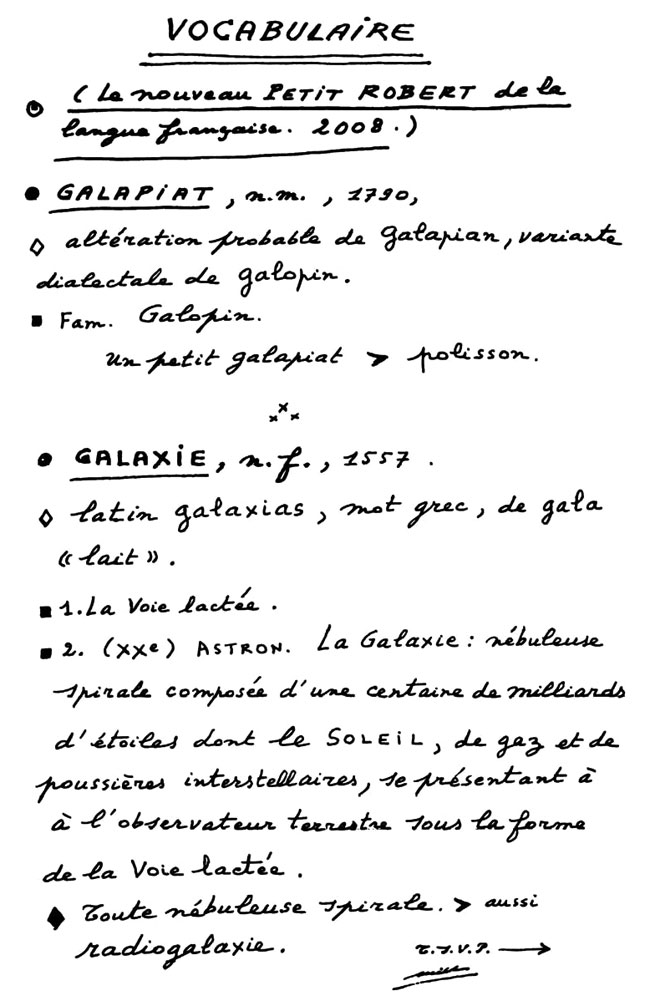 VOCABULAIRE
(Le nouveau PETIT ROBERT de la
langue française. 2008.)
● GALAPIAT, n.m., 1790,
◊ altération probable de galapian, variante
dialectale de galopin.
■ Fam. Galopin.
un petit galapiat > polisson.
x x x
● GALAXIE, n.f., 1557.
◊ latin galaxias, mot grec, de gala
« lait ».
■ 1. La Voie lactée.
■ 2. (XXe) ASTRON. La Galaxie : nébuleuse
spirale composée d'une centaine de milliards
d'étoiles dont le SOLEIL, de gaz et de
poussières interstellaires, se présentant à
à l'observateur terrestre sous la forme
de la Voie lactée.
◆ Toute nébuleuse spirale. > aussi
radiogalaxie.
T.S.V.P. →